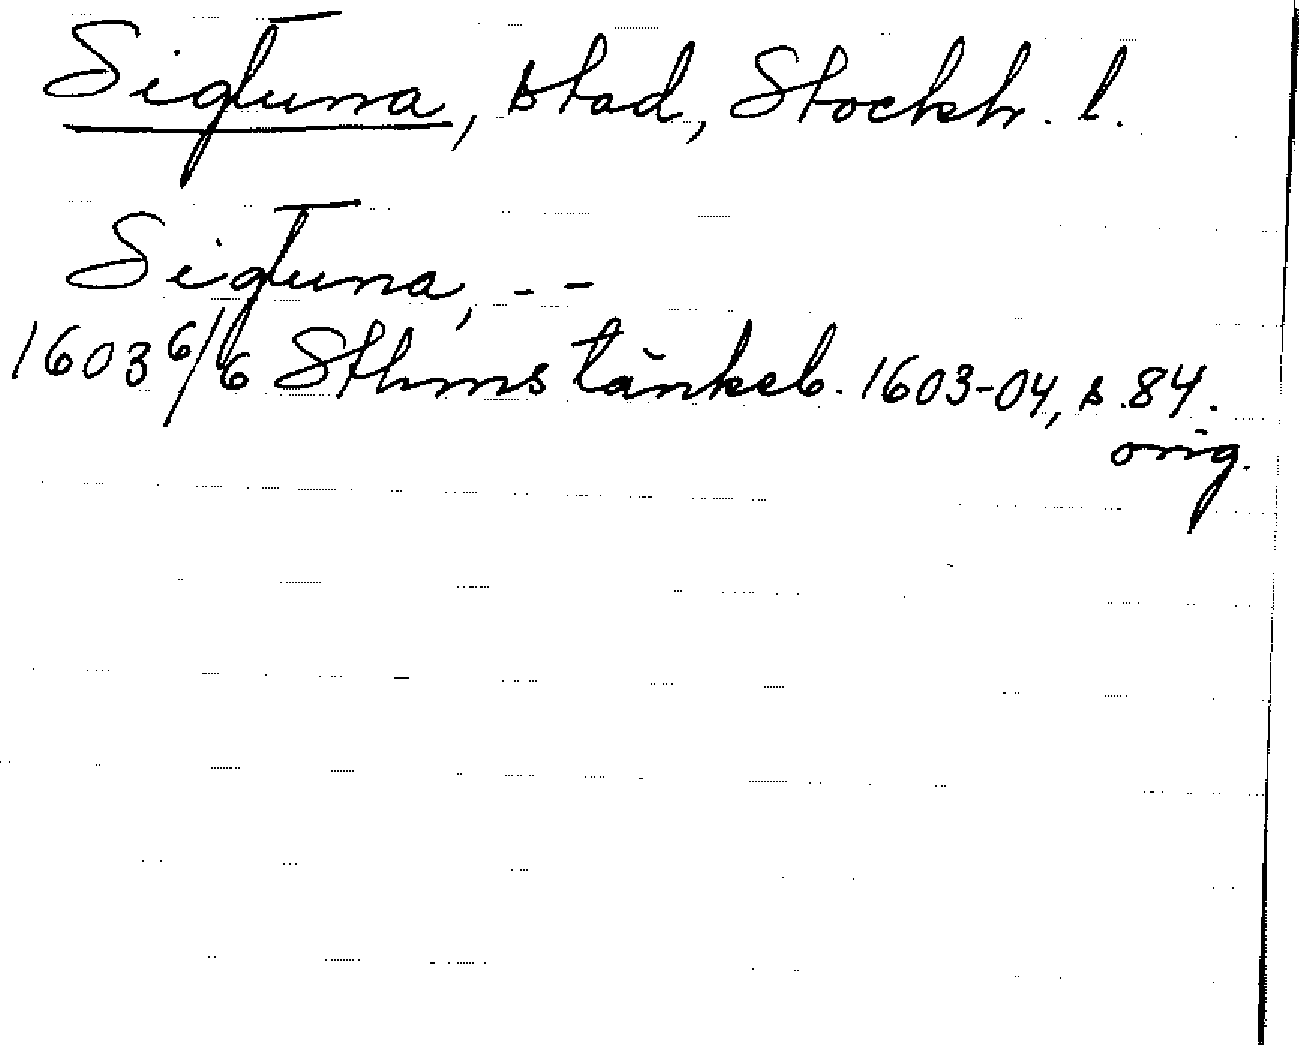 Sigtuna, stad, Stockh. l.
Sigtuna, - -
1603 6/6 Sthms tänkeb. 1603-04, s. 84.
orig.